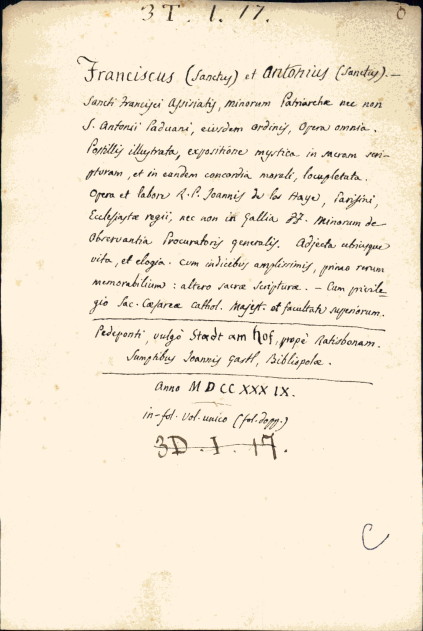 3T. I. 17.
Franciscus (Sanctus) et Antonius (Sanctus). —
Sancti Francisci Assisiatis, minorum Patriarchæ nec non
S. Antonii Paduani, eiusdem ordinis, Opera omnia.
Postillis illustrata, expositione mystica in sacram scri-
pturam, et in eandem concordia morali, locupletata.
Opera et labore R. P. Joannis de la Haye, Parisini,
Ecclesiastæ regii, nec non in Gallia FF. Minorum de
Observantia Procuratoris generalis. Adjecta utriusque
vita, et elogia. Cum indicibus amplissimis, primo rerum
memorabilium: altero sacræ scripturæ. — Cum privile-
gio Sac. Cæsareæ Cathol. Majest. et facultate superiorum.
Pedeponti, vulgò Stadt am Hof, propè Ratisbonam.
Sumptibus Joannis Gastl, Bibliopolæ.
Anno MDCCXXXIX.
in-fol. vol. unico (fol. dopp.)
3D. I. 17.
C